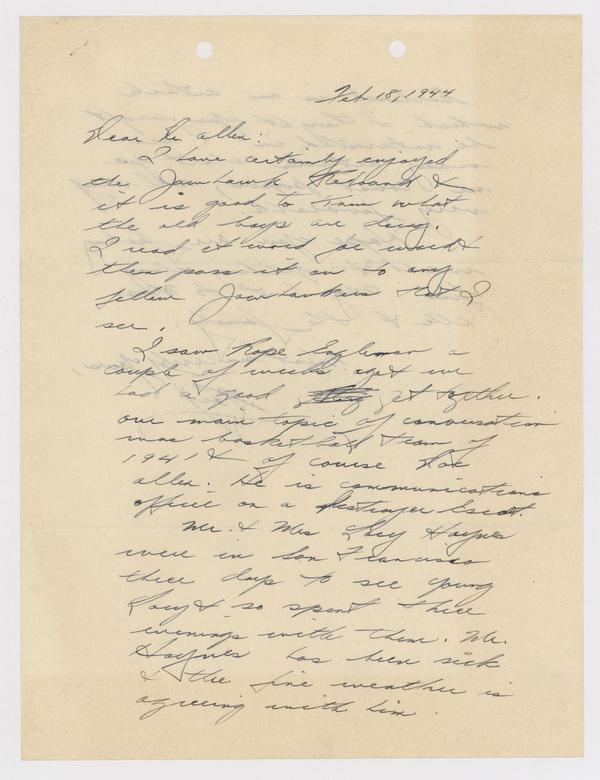 Feb 18, 1944
Dear Dr. Allen:
I have certainly enjoyed
the Jayhawk Rebound &
it is good to know what
the old boys are doing.
I read it word for word &
then pass it on to any
fellow Jayhawkers that I
see.
I saw Hope Engleman a
couple of weeks ago & we
had a good get together.
Our main topic of conversation
was basketball team of
1941 & of course Doc
Allen. He is communications
officer on a Destroyer Escort.
Mr. & Mrs Lacy Haynes
were in San Francisco
three days to see young
Lacy & so spent three
evenings with them. Mr.
Haynes has been sick
& the fine weather is
agreeing with him.